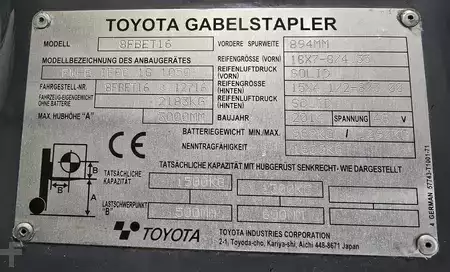 TOYOTA GABELSTAPLER
MODELL 8FBET16
VORDERE SPURWEITE 894MM
MODELLBEZEICHNUNG DES ANBAUGERÄTES
REIFENGRÖSSE (VORN) 18X7-8/4.33
REIFENLUFTDRUCK (VORN) SOLID
FAHRGESTELL-NR. 8FBET16
REIFENGRÖSSE (HINTEN)
FAHRZEUG-EIGENGEWICHT OHNE BATTERIE 2183KG
REIFENLUFTDRUCK (HINTEN)
MAX. HUBHÖHE "A" 5000MM
BAUJAHR SPANNUNG V
BATTERIEGEWICHT MIN./MAX.
NENNTRAGFÄHIGKEIT
CE
TATSÄCHLICHE KAPAZITÄT MIT HUBGERÜST SENKRECHT- WIE DARGESTELLT
TATSÄCHLICHE KAPAZITÄT 1500KG
LASTSCHWERPUNKT "B" 500MM 600MM
B
B
A
TOYOTA
TOYOTA INDUSTRIES CORPORATION
2-1, Toyoda-cho, Kariya-shi, Aichi 448-8671 Japan
4 GERMAN 57743-T1001-71